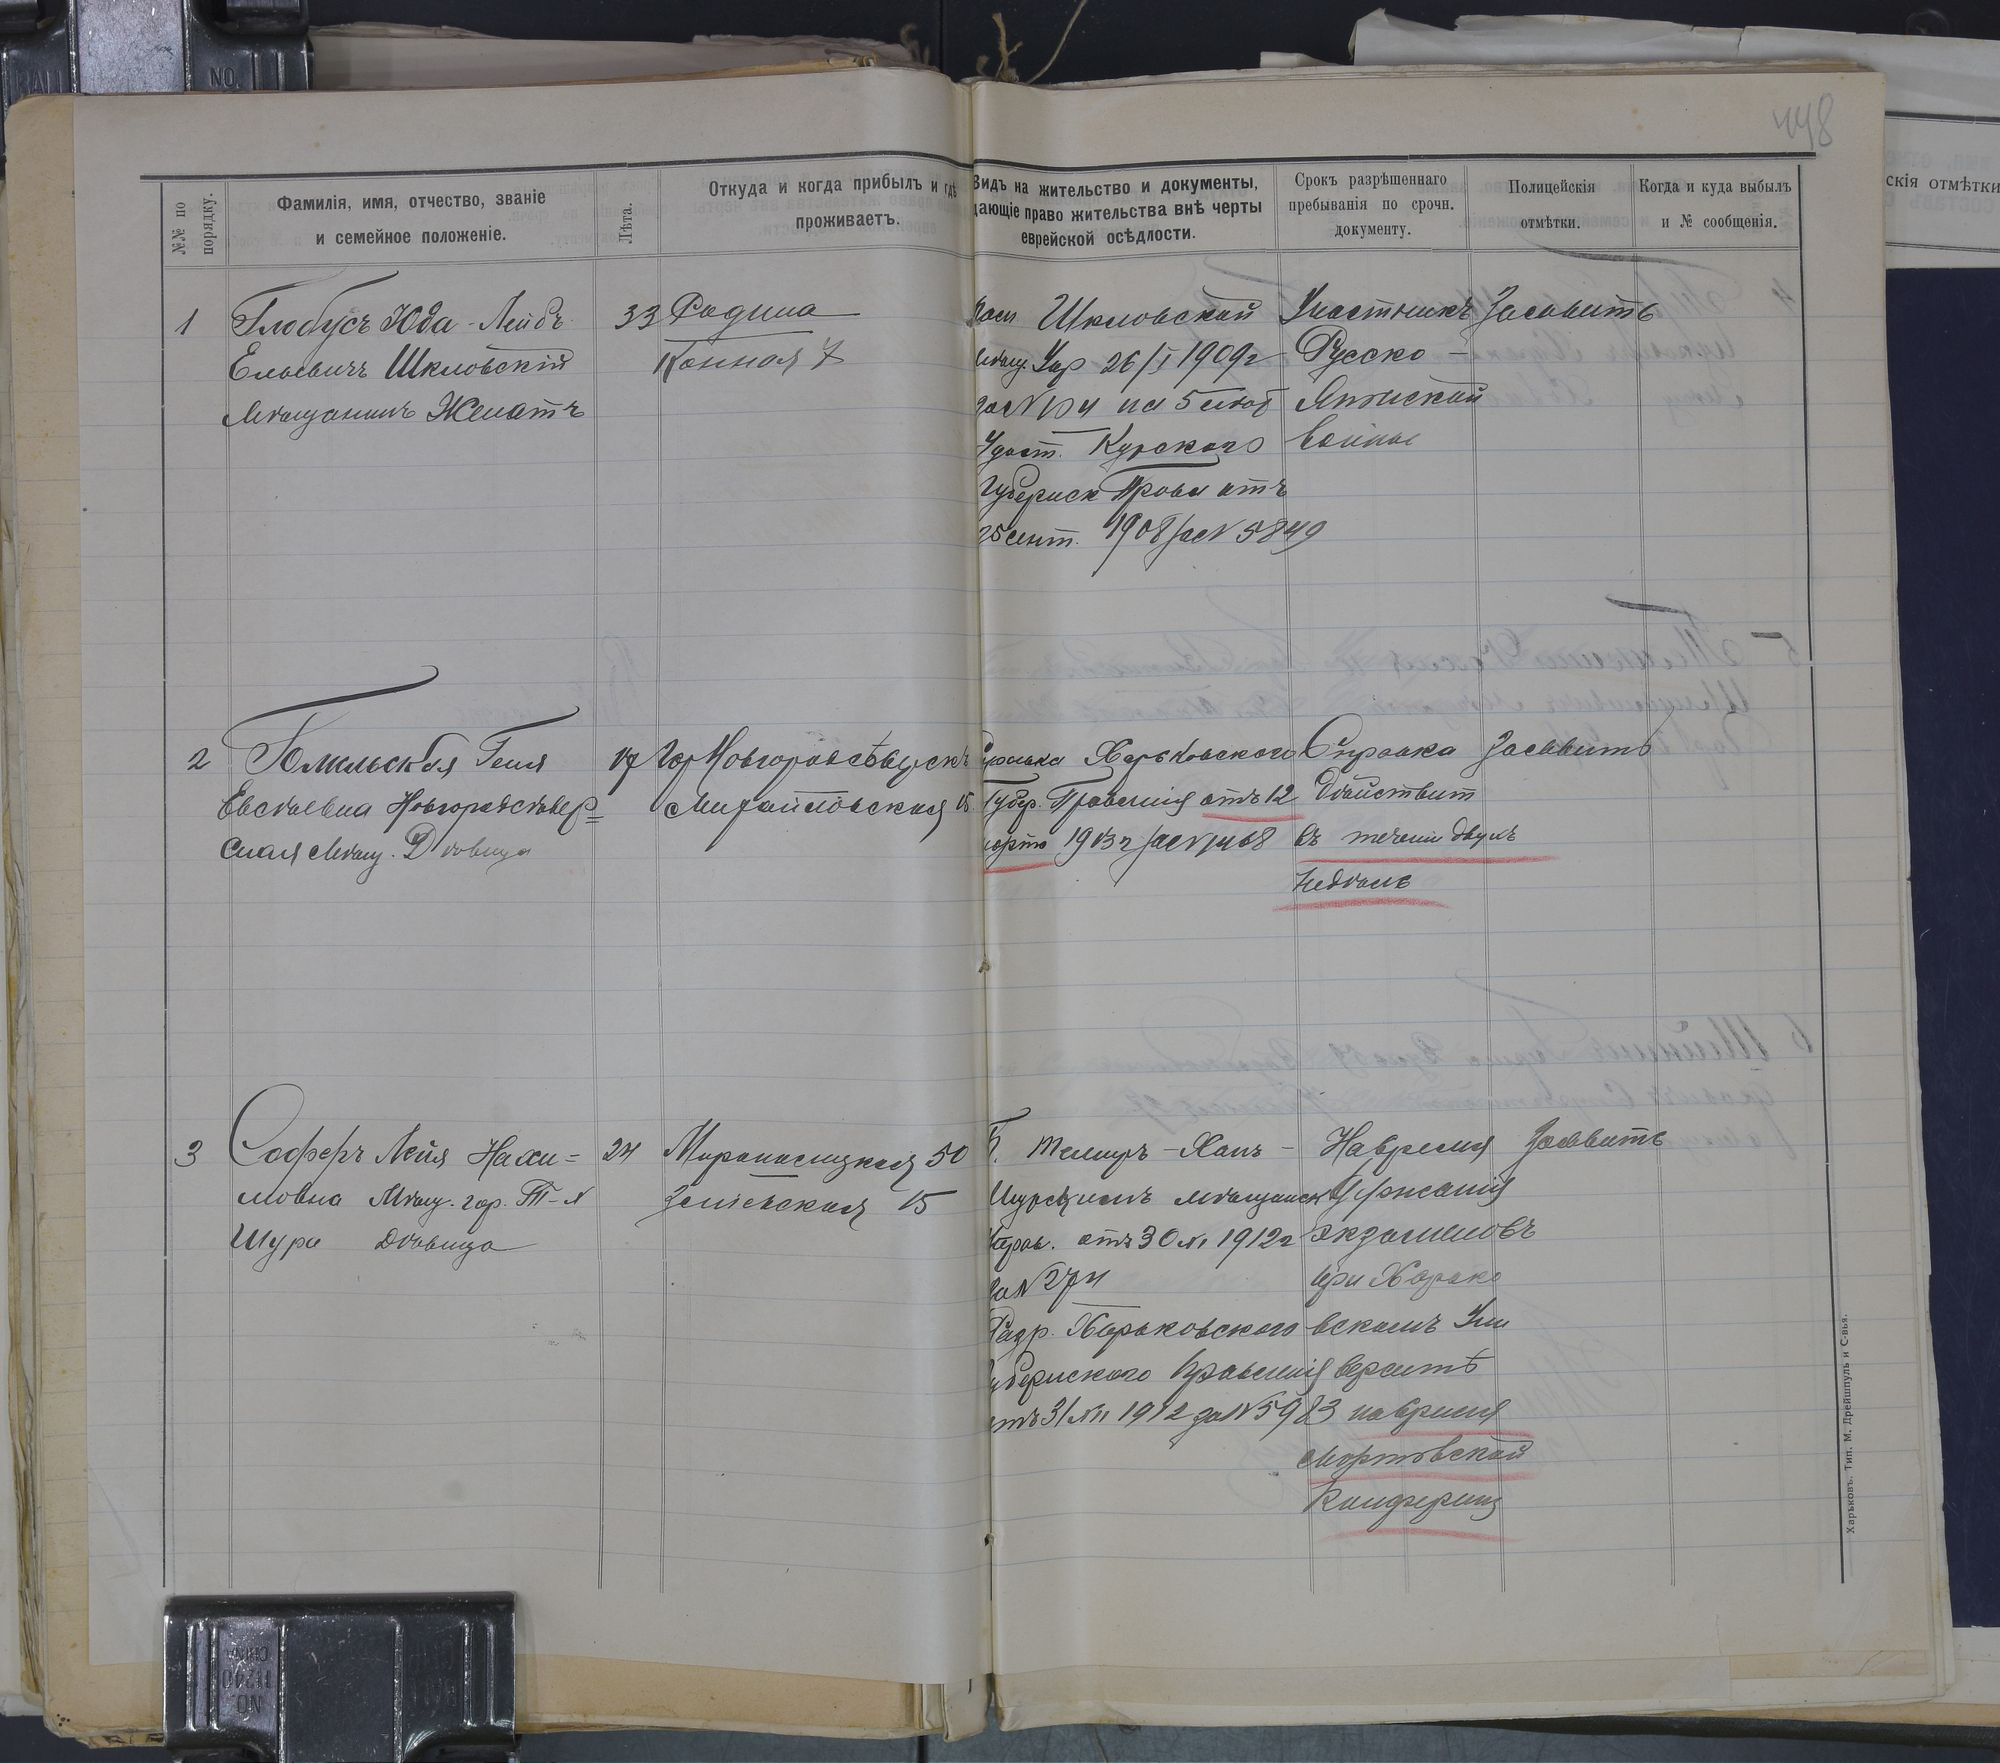 448
№№ по порядку.
Фамилія, имя, отчество, званіе
и семейное положеніе.
Лѣта.
Откуда и когда прибылъ и гдѣ
проживаетъ.
Видъ на жительство и документы,
дающіе право жительства внѣ черты
еврейской осѣдлости.
Срокъ разрѣшеннаго
пребыванія по срочн.
документу.
Полицейскія
отмѣтки.
Когда и куда выбылъ
и № сообщенія.
скія отмѣтки
1
Глобусъ Юда-Лейбъ
Ельевичъ Шкловскій
Мѣщанинъ Женатъ
33
Конная 7
Шкловской
Мѣщ. Упр 26/I 1909г
за № 104 на 5 лѣтъ
Удост. Курского
Губернск Правл отъ
25 сент. 1908 за № 5849
Участникъ
Русско-
Японской
войны
2
Гомельская Геня
Евсѣевна Новгородсѣвер=
ская Мѣщ. Дѣвица
17
Гор Новгородсѣверскъ
Михайловская 15
Справка Харьковского
Губер. Правленія отъ 12
марта 1913г за №
Справка
дѣйствит
въ теченіи двухъ
недѣль
3
Соферъ Лейя Нахи=
мовна Мѣщ. гор. Т-Х
Шура Дѣвица
24
50
15
Б. Темиръ-Ханъ-
Шуринскимъ мѣщанск
Управ. отъ 30 1912г
за № 274
Разр. Харьковского
Губернского Правленія
отъ 31 1912 за № 5983
На время
держанія
экзаменовъ
при Харько
вскомъ Уни
верситѣ
на время
мартовской
Конференц
Харьковъ. Тип. М. Дрейшпуль и С-вья.